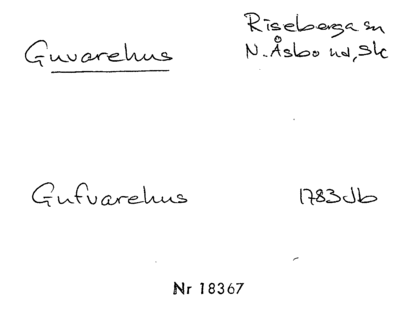 Guvarehus
Riseberga sn
N. Åsbo hd, Sk
Gufvarehus
1783 Jb
Nr 18367